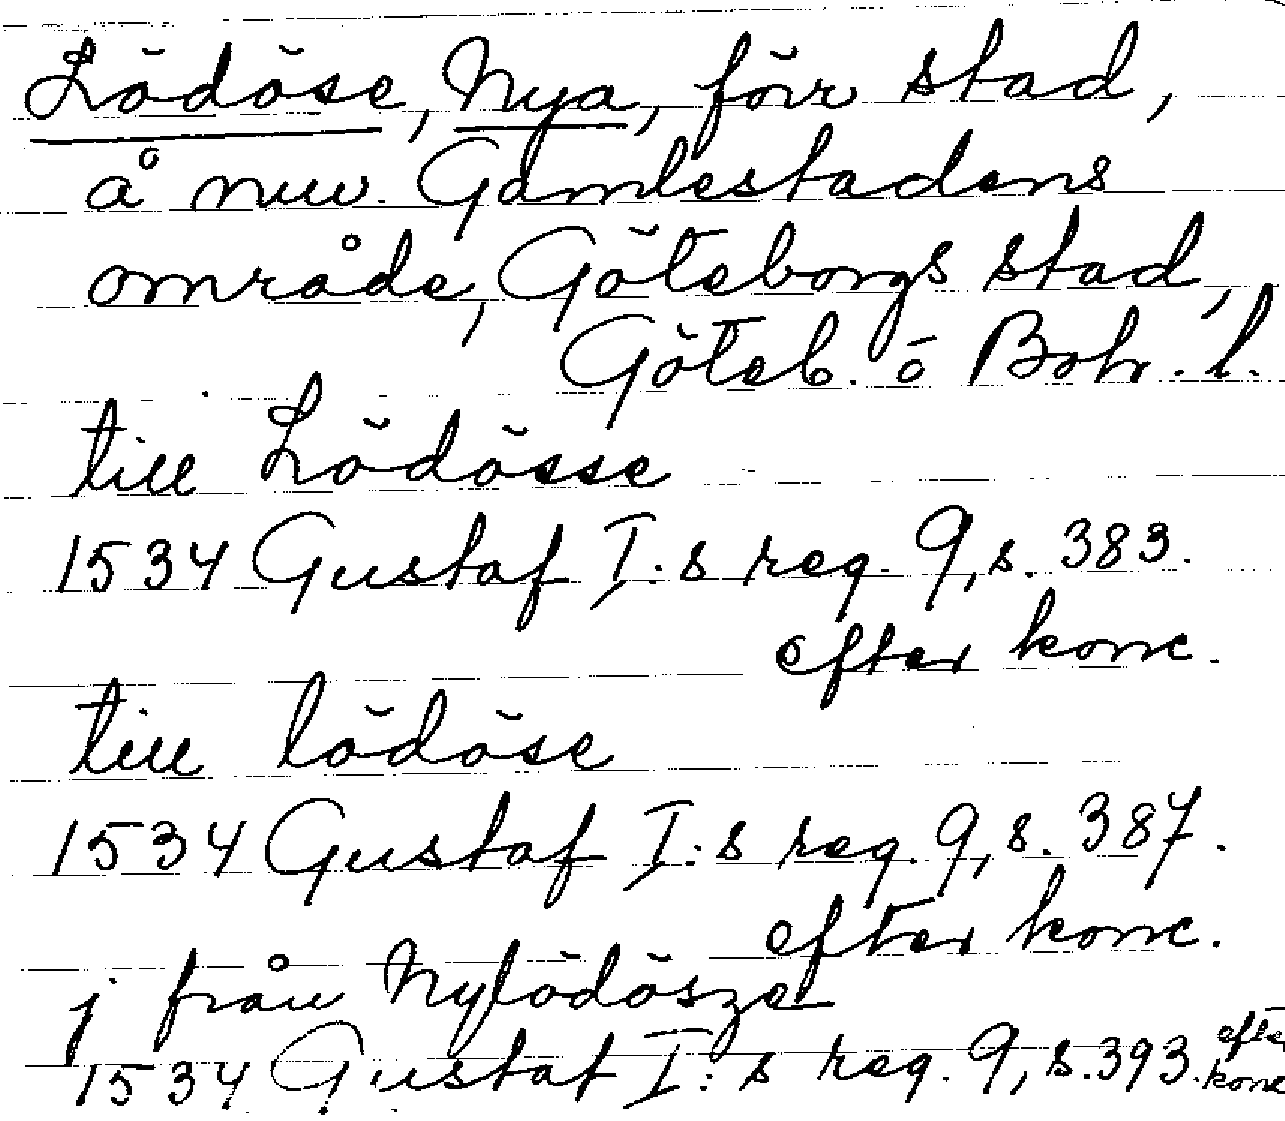 Lödöse, Nya, förr stad,
å nuv. Gamlestadens
område, Göteborgs stad,
Göteb. o Boh. l.
till Lödösse
1534 Gustaf I:s reg. 9, s. 383.
efter konc.
till lödöse
1534 Gustaf I:s reg. 9, s. 387.
efter konc.
j från Nylödösze
1534 Gustaf I:s reg. 9, s. 393. efter
konc